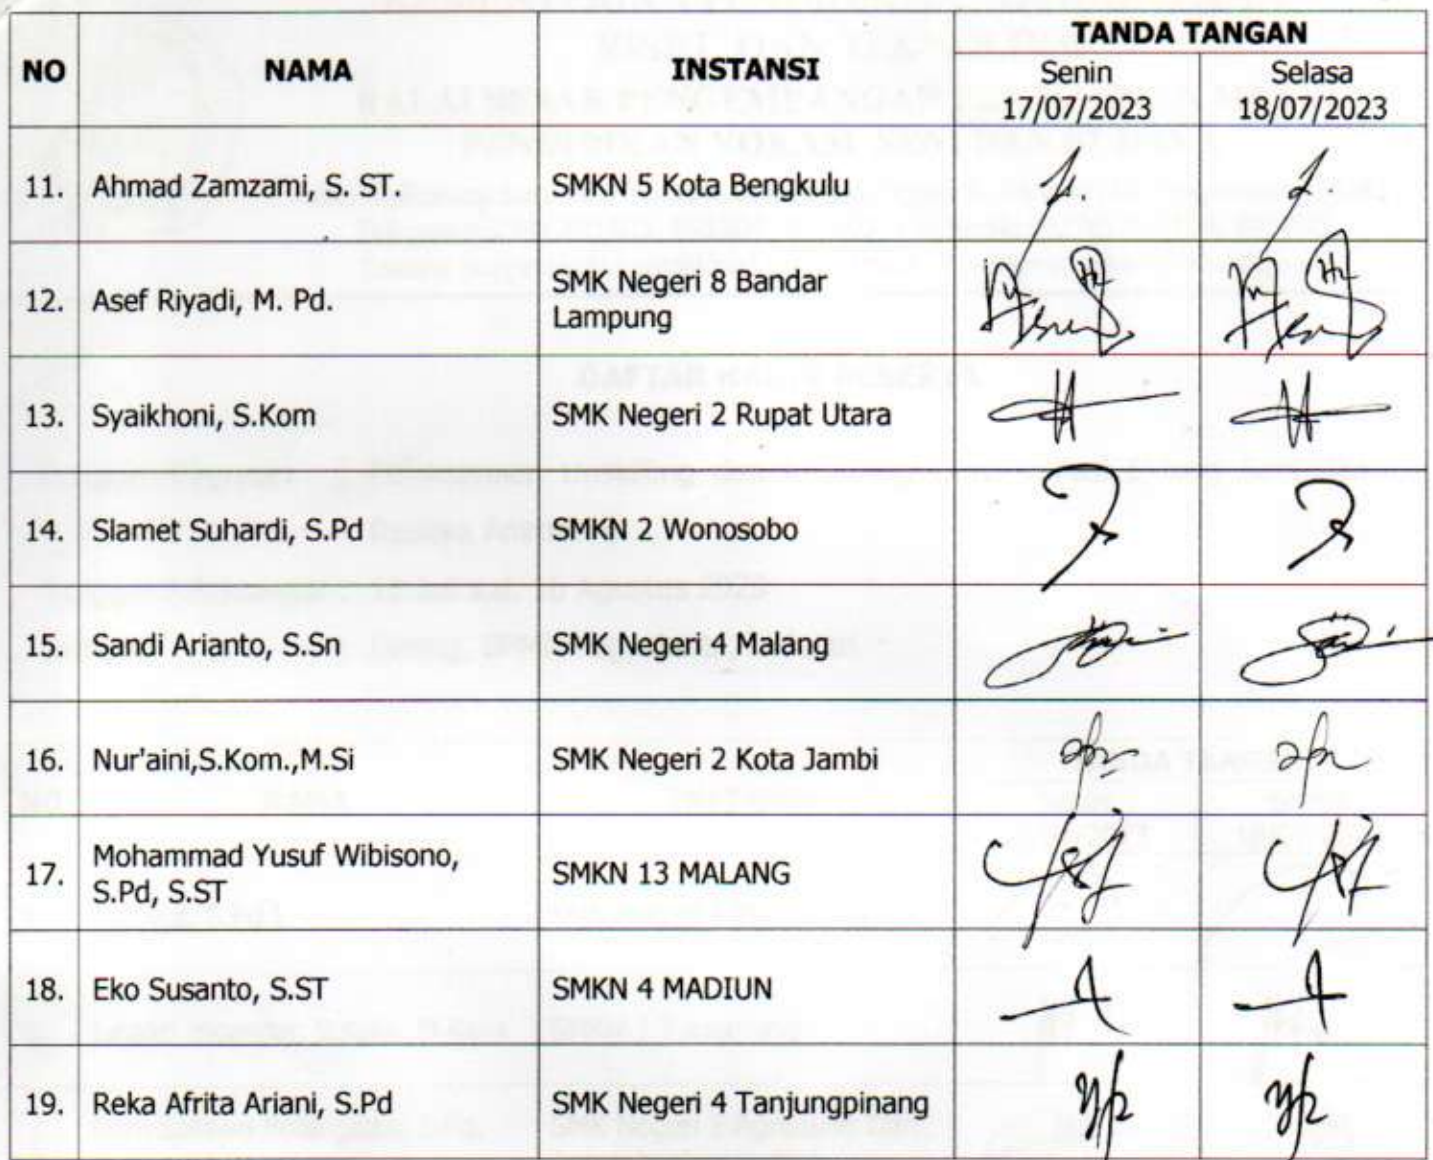 TANDA TANGAN
NO NAMA INSTANSI Senin Selasa
17/07/2023 18/07/2023
11. Ahmad Zamzami, S. ST. SMKN 5 Kota Bengkulu
12. Asef Riyadi, M. Pd. SMK Negeri 8 Bandar
Lampung
13. Syaikhoni, S.Kom SMK Negeri 2 Rupat Utara
14. Slamet Suhardi, S.Pd SMKN 2 Wonosobo
15. Sandi Arianto, S.Sn SMK Negeri 4 Malang
16. Nur'aini,S.Kom.,M.Si SMK Negeri 2 Kota Jambi
17. Mohammad Yusuf Wibisono, SMKN 13 MALANG
S.Pd, S.ST
18. Eko Susanto, S.ST SMKN 4 MADIUN
19. Reka Afrita Ariani, S.Pd SMK Negeri 4 Tanjungpinang